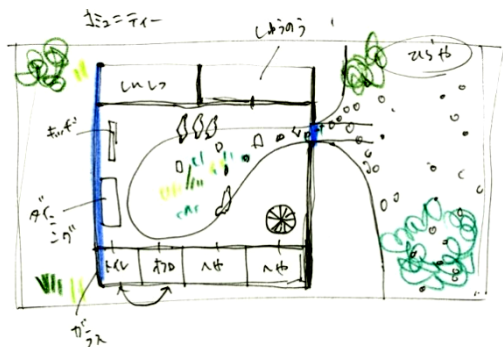 コミュニティー
しゅうのう
ひらや
しんしつ
キッチン
ダイニング
トイレ
オフロ
へや
へや
ガラス